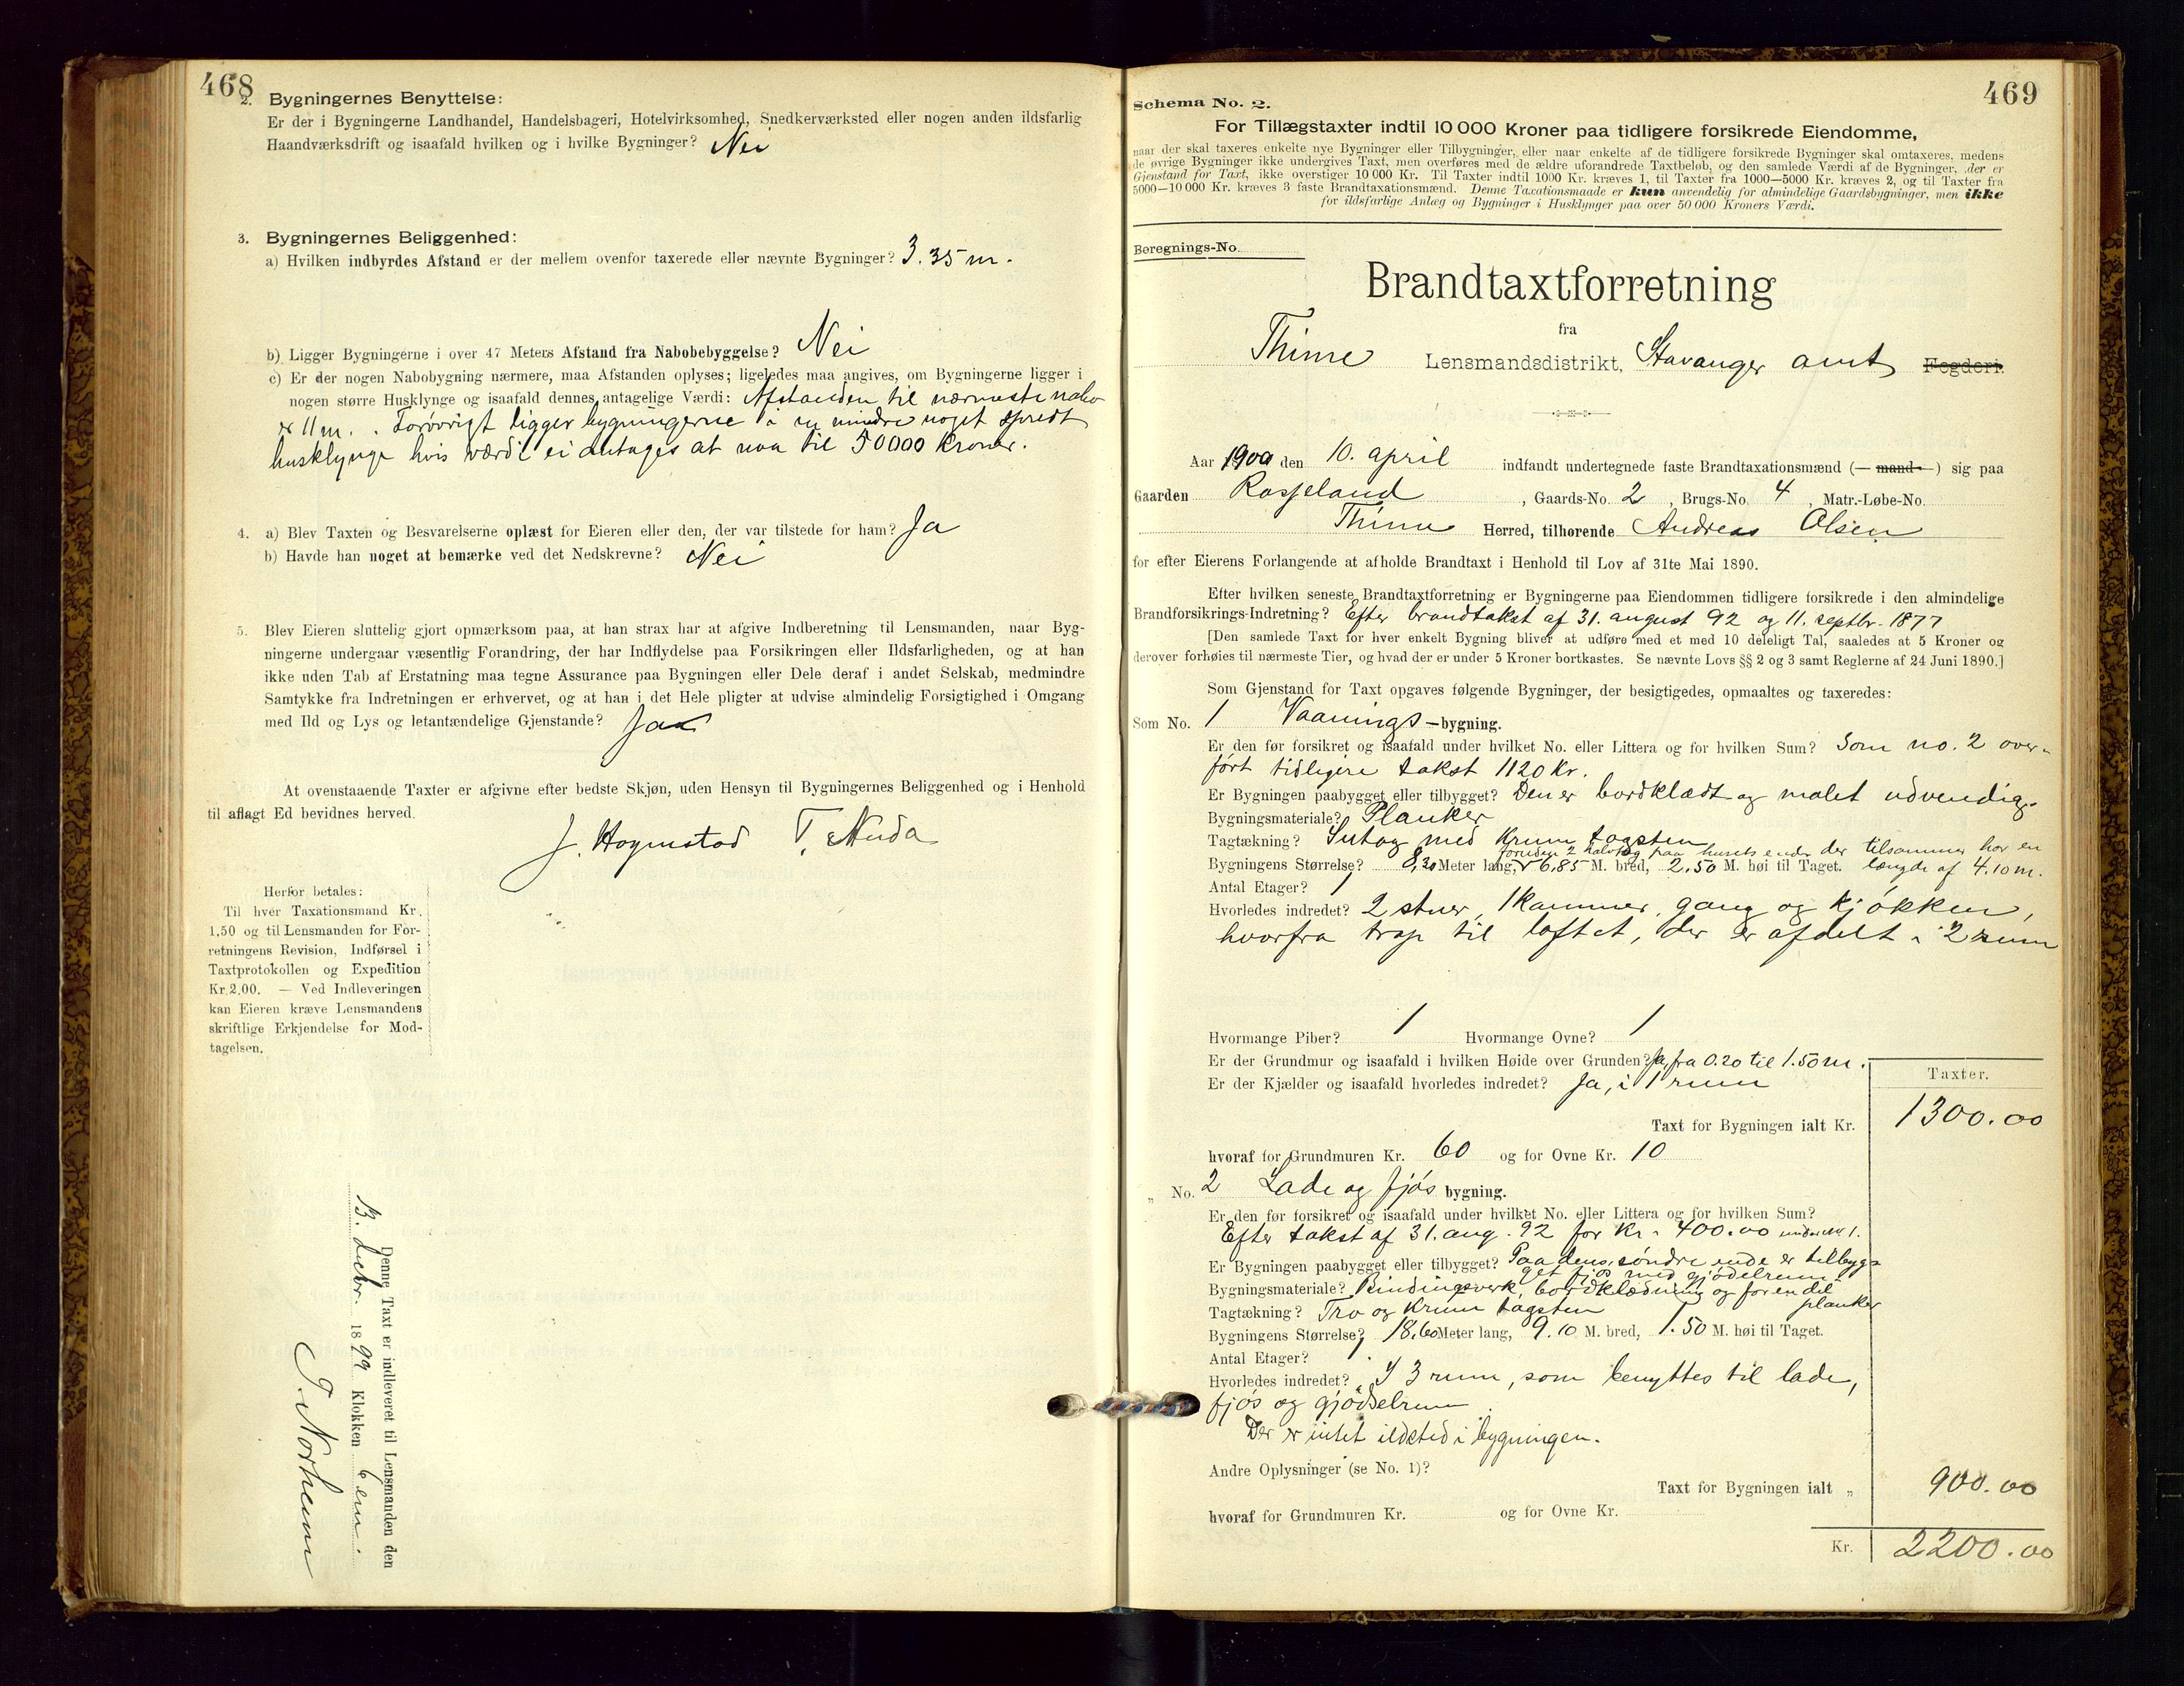 468
2. Bygningernes Benyttelse:
Er der i Bygningerne Landhandel, Handelsbageri, Hotelvirksomhed, Snedkerværksted eller nogen anden ildsfarlig
Haandværksdrift og isaafald hvilken og i hvilke Bygninger? Nei
3. Bygningernes Beliggenhed:
a) Hvilken indbyrdes Afstand er der mellem ovenfor taxerede eller nævnte Bygninger? 3.35 m.
b) Ligger Bygningerne i over 47 Meters Afstand fra Nabobebyggelse? Nei
c) Er der nogen Nabobygning nærmere, maa Afstanden oplyses; ligeledes maa angives, om Bygningerne ligger i
nogen større Husklynge og isaafald dennes antagelige Værdi: Afstanden til nærmeste nabo
er 11 m. Forøvrigt ligger bygningerne i en mindre noget spredt
husklynge hvis værdi ei antages at naa til 50000 kroner.
4. a) Blev Taxten og Besvarelserne oplæst for Eieren eller den, der var tilstede for ham? Ja
b) Havde han noget at bemærke ved det Nedskrevne? Nei
5. Blev Eieren sluttelig gjort opmærksom paa, at han strax har at afgive Indberetning til Lensmanden, naar Byg-
ningerne undergaar væsentlig Forandring, der har Indflydelse paa Forsikringen eller Ildsfarligheden, og at han
ikke uden Tab af Erstatning maa tegne Assurance paa Bygningen eller Dele deraf i andet Selskab, medmindre
Samtykke fra Indretningen er erhvervet, og at han i det Hele pligter at udvise almindelig Forsigtighed i Omgang
med Ild og Lys og letantændelige Gjenstande? Ja
At ovenstaaende Taxter er afgivne efter bedste Skjøn, uden Hensyn til Bygningernes Beliggenhed og i Henhold
til aflagt Ed bevidnes herved.
J. Hognestad T. Nuda
Herfor betales:
Til hver Taxationsmand Kr.
1,50 og til Lensmanden for For-
retningens Revision, Indførsel i
Taxtprotokollen og Expedition
Kr. 2,00. — Ved Indleveringen
kan Eieren kræve Lensmandens
skriftlige Erkjendelse for Mod-
tagelsen.
Denne Taxt er indleveret til Lensmanden den
13. 1899 Klokken 6 em.
G. Norheim
469
Schema No. 2.
For Tillægstaxter indtil 10 000 Kroner paa tidligere forsikrede Eiendomme,
naar der skal taxeres enkelte nye Bygninger eller Tilbygninger, eller naar enkelte af de tidligere forsikrede Bygninger skal omtaxeres, medens
de øvrige Bygninger ikke undergives Taxt, men overføres med de ældre uforandrede Taxtbeløb, og den samlede Værdi af de Bygninger, der er
Gjenstand for Taxt, ikke overstiger 10 000 Kr. Til Taxter indtil 1000 Kr. kræves 1, til Taxter fra 1000—5000 Kr. kræves 2, og til Taxter fra
5000—10 000 Kr. kræves 3 faste Brandtaxationsmænd. Denne Taxationsmaade er kun anvendelig for almindelige Gaardsbygninger, men ikke
for ildsfarlige Anlæg og Bygninger i Husklynger paa over 50 000 Kroners Værdi.
Beregnings-No.
Brandtaxtforretning
fra
Thime Lensmandsdistrikt, Stavanger amt Fogderi.
Aar 1900 den 10. april indfandt undertegnede faste Brandtaxationsmænd (— mand —) sig paa
Gaarden Rosseland, Gaards-No. 2, Brugs-No. 4, Matr.-Løbe-No.
Thime Herred, tilhørende Andreas Olsen
for efter Eierens Forlangende at afholde Brandtaxt i Henhold til Lov af 31te Mai 1890.
Efter hvilken seneste Brandtaxtforretning er Bygningerne paa Eiendommen tidligere forsikrede i den almindelige
Brandforsikrings-Indretning? Efter brandtakst af 31. august 92 og 11. septbr. 1877
[Den samlede Taxt for hver enkelt Bygning bliver at udføre med et med 10 deleligt Tal, saaledes at 5 Kroner og
derover forhøies til nærmeste Tier, og hvad der er under 5 Kroner bortkastes. Se nævnte Lovs §§ 2 og 3 samt Reglerne af 24 Juni 1890.]
Som Gjenstand for Taxt opgaves følgende Bygninger, der besigtigedes, opmaaltes og taxeredes:
Som No. 1 Vaanings-bygning.
Er den før forsikret og isaafald under hvilket No. eller Littera og for hvilken Sum? Som no. 2 over-
ført tidligere takst 1120 kr.
Er Bygningen paabygget eller tilbygget? Den er bordklædt og malet udvendig.
Bygningsmateriale? Planker
Tagtækning? Sutag med krum tagsten
foruden 2 halvtag paa husets ender der tilsammen har en
Bygningens Størrelse? 8,30 Meter lang, 6,85 M. bred, 2,50 M. høi til Taget. længde af 4.10 m.
Antal Etager? 1
Hvorledes indredet? 2 stuer, 1 kammer, gang og kjøkken,
hvorfra trap til loftet, der er afdelt i 2 rum
Hvormange Piber? 1 Hvormange Ovne? 1
Er der Grundmur og isaafald i hvilken Høide over Grunden? Ja, fra 0.20 til 1.50 m.
Er der Kjælder og isaafald hvorledes indredet? Ja, i 1 rum
Taxter.
Taxt for Bygningen ialt Kr. 1300.00
hvoraf for Grundmuren Kr. 60 og for Ovne Kr. 10
„ No. 2 Lade og fjøs bygning.
Er den før forsikret og isaafald under hvilket No. eller Littera og for hvilken Sum?
Efter takst af 31. aug. 92 for kr. 400.00 under no 1.
Er Bygningen paabygget eller tilbygget? Paa dens søndre ende er tilbyg-
get fjøs med gjødelrum
Bygningsmateriale? Bindingsverk, bordklædning og for en del
planker
Tagtækning? Tro og krum tagsten
Bygningens Størrelse? 18,60 Meter lang, 9.10 M. bred, 1.50 M. høi til Taget.
Antal Etager? 1
Hvorledes indredet? I 3 rum, som benyttes til lade,
fjøs og gjødselrum
Der er intet ildsted i bygningen.
Andre Oplysninger (se No. 1)?
Taxt for Bygningen ialt „ 900.00
hvoraf for Grundmuren Kr. og for Ovne Kr.
Kr. 2200.00